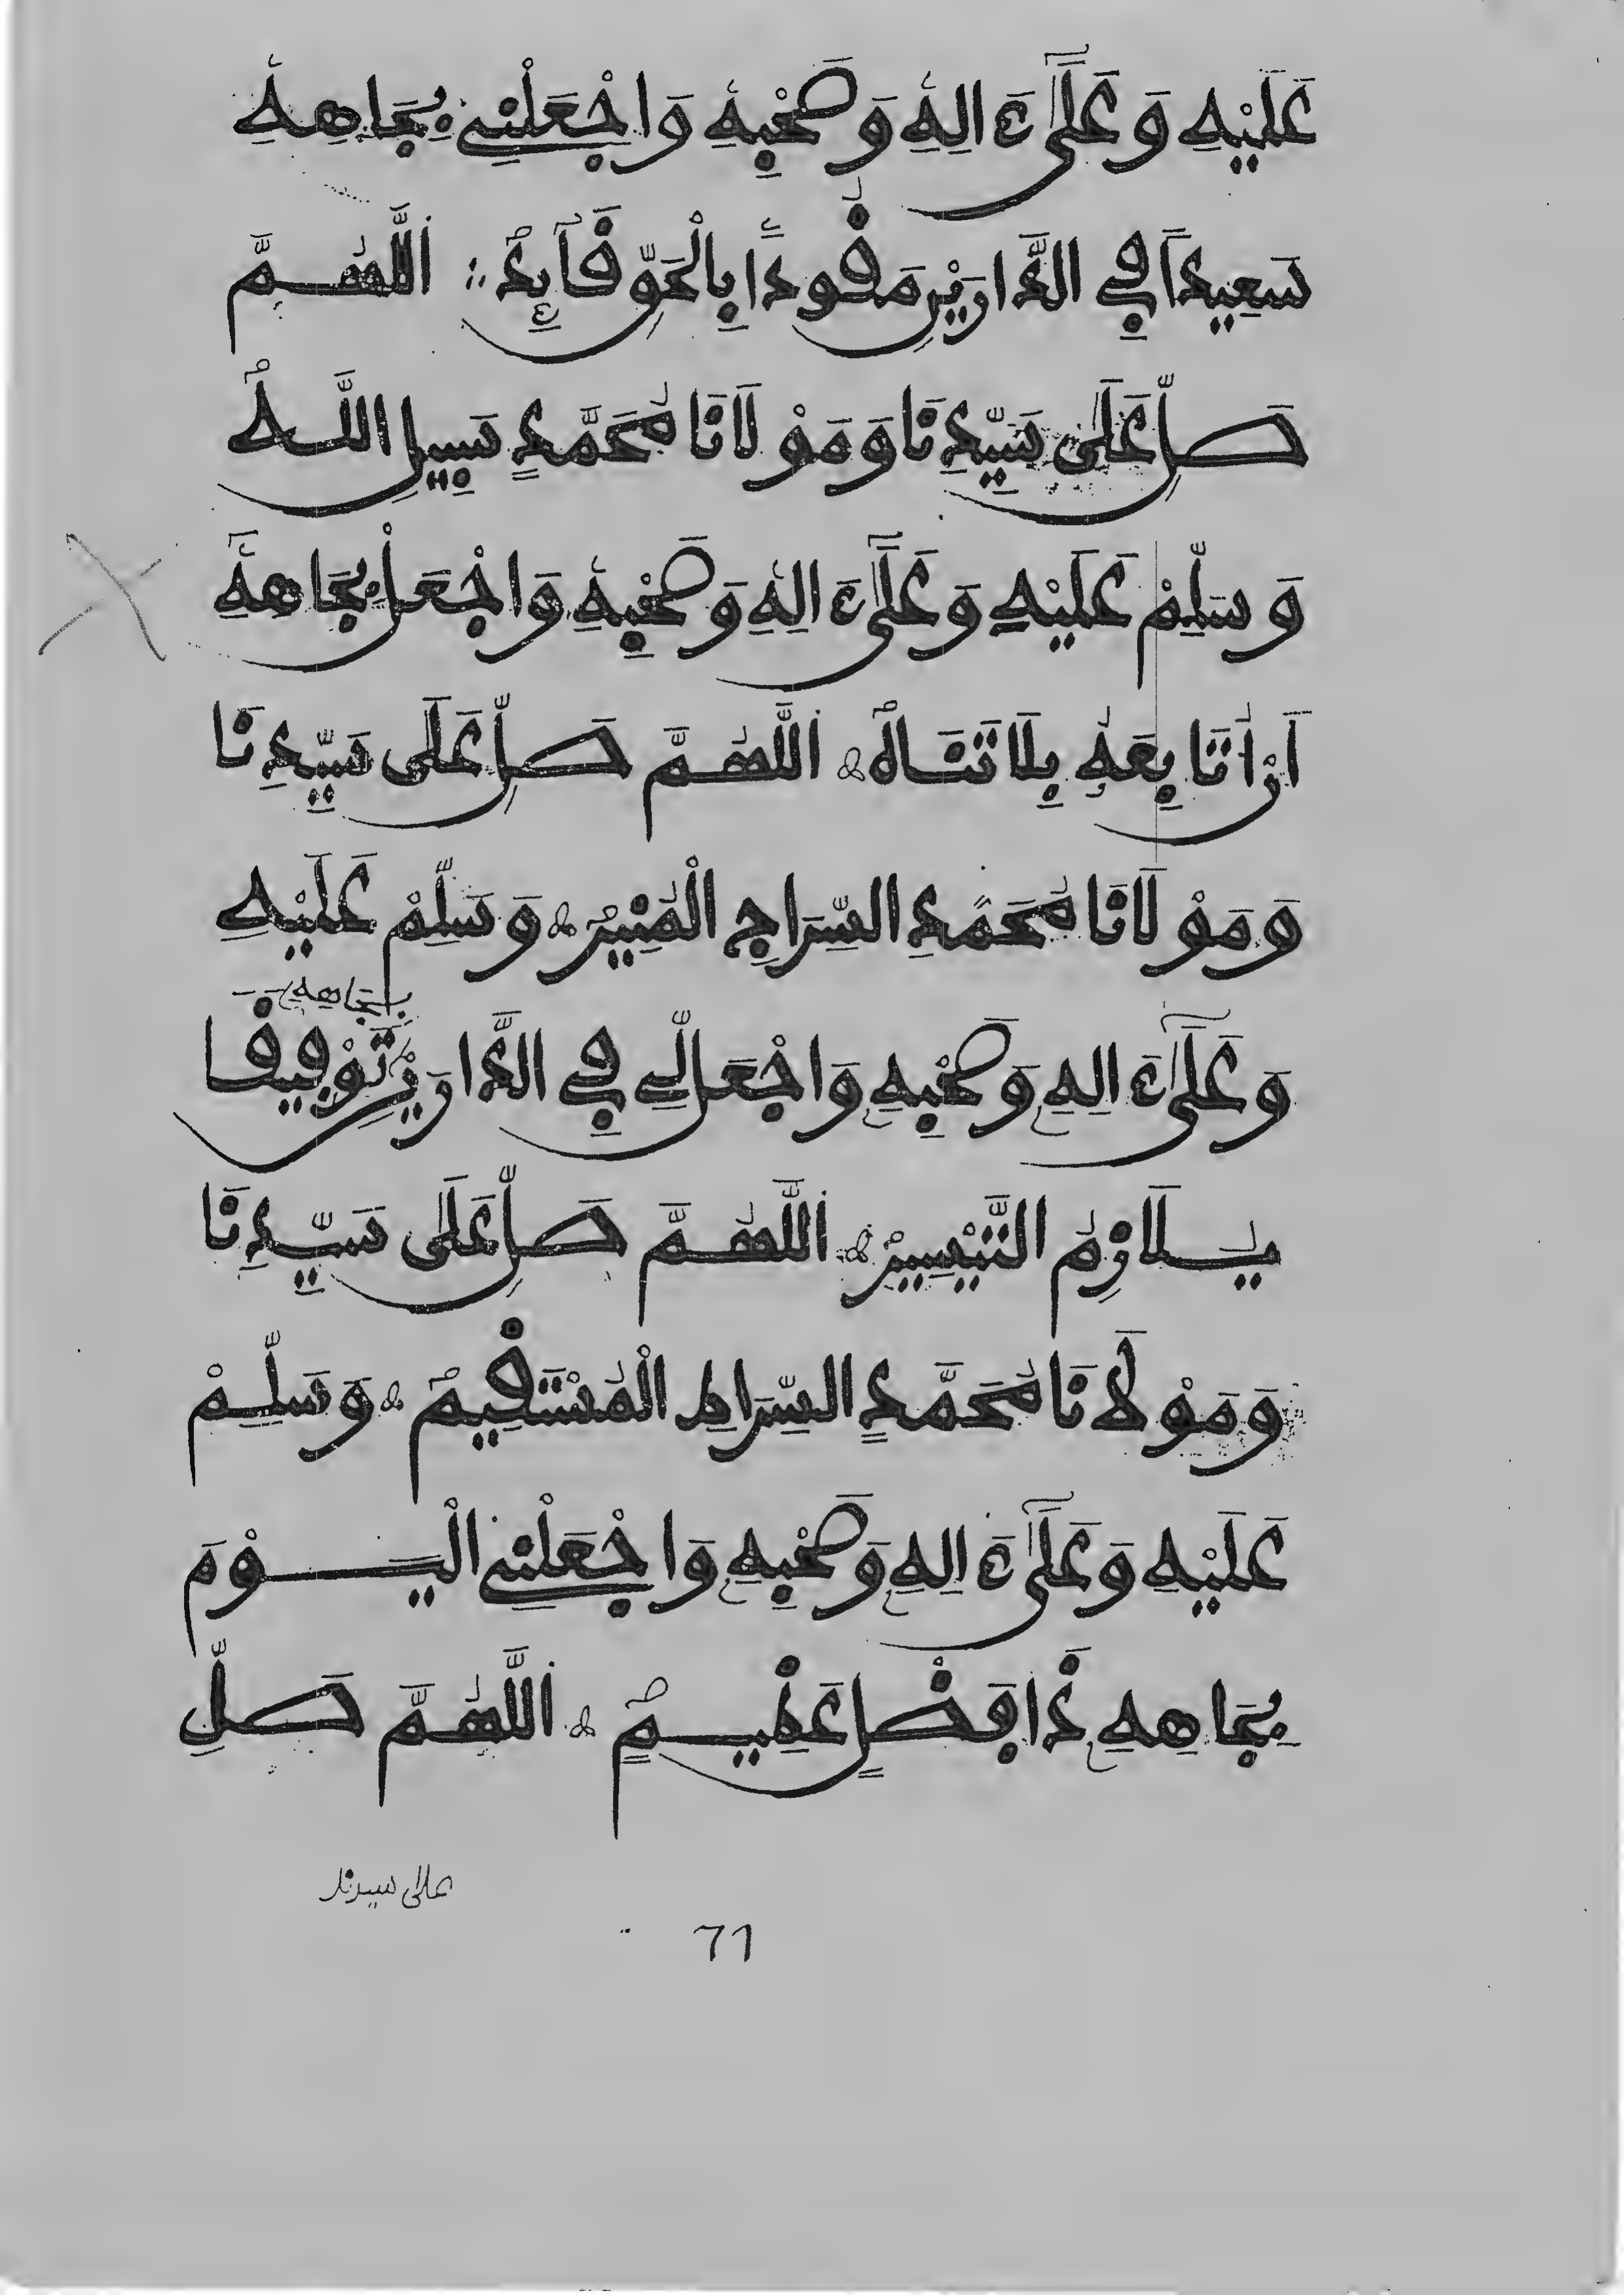 عَلَيْهِ وَعَلَىٰٓ ءَالِهِۦ وَصَحْبِهِۦ وَاجْعَلْنِي بِجَاهِهِۦ
سَعِيداً فِي الدَّارَيْنِ مَقُوداً بِالْحَقِّ قَآئِدٌ ؛ اَللَّهُمَّ
صَلِّ عَلَى سَيِّدِنَا وَمَوْلَانَا مُحَمَّدٍ سَبِيلِ اللَّهِ
وَسَلِّمْ عَلَيْهِ وَعَلَىٰٓ ءَالِهِۦ وَصَحْبِهِۦ وَاجْعَلْ بِجَاهِهِۦٓ
أَنْ أُتَابِعَهُۥ بِلَا تَنَاهٍ اَللَّهُمَّ صَلِّ عَلَى سَيِّدِنَا
وَمَوْلَانَا مُحَمَّدٍ السِّرَاجِ الْمُنِيرِ وَسَلِّمْ عَلَيْهِ
بِجَاهِهِ
وَعَلَىٰٓ ءَالِهِۦ وَصَحْبِهِۦ وَاجْعَل لِّي فِي الدَّارَيْنِ تَوْفِيقاً
يُلَازِمُ التَّيْسِيرْ اَللَّهُمَّ صَلِّ عَلَى سَيِّدِنَا
وَمَوْلَانَا مُحَمَّدٍ السِّرَاطِ الْمُسْتَقِيمْ وَسَلِّمْ
عَلَيْهِ وَعَلَىٰٓ ءَالِهِۦ وَصَحْبِهِۦ وَاجْعَلْنِي الْيَوْمَ
بِجَاهِهِۦ ذَا فَضْلٍ عَظِيمٍ اَللَّهُمَّ صَلِّ
على سيدنا
71